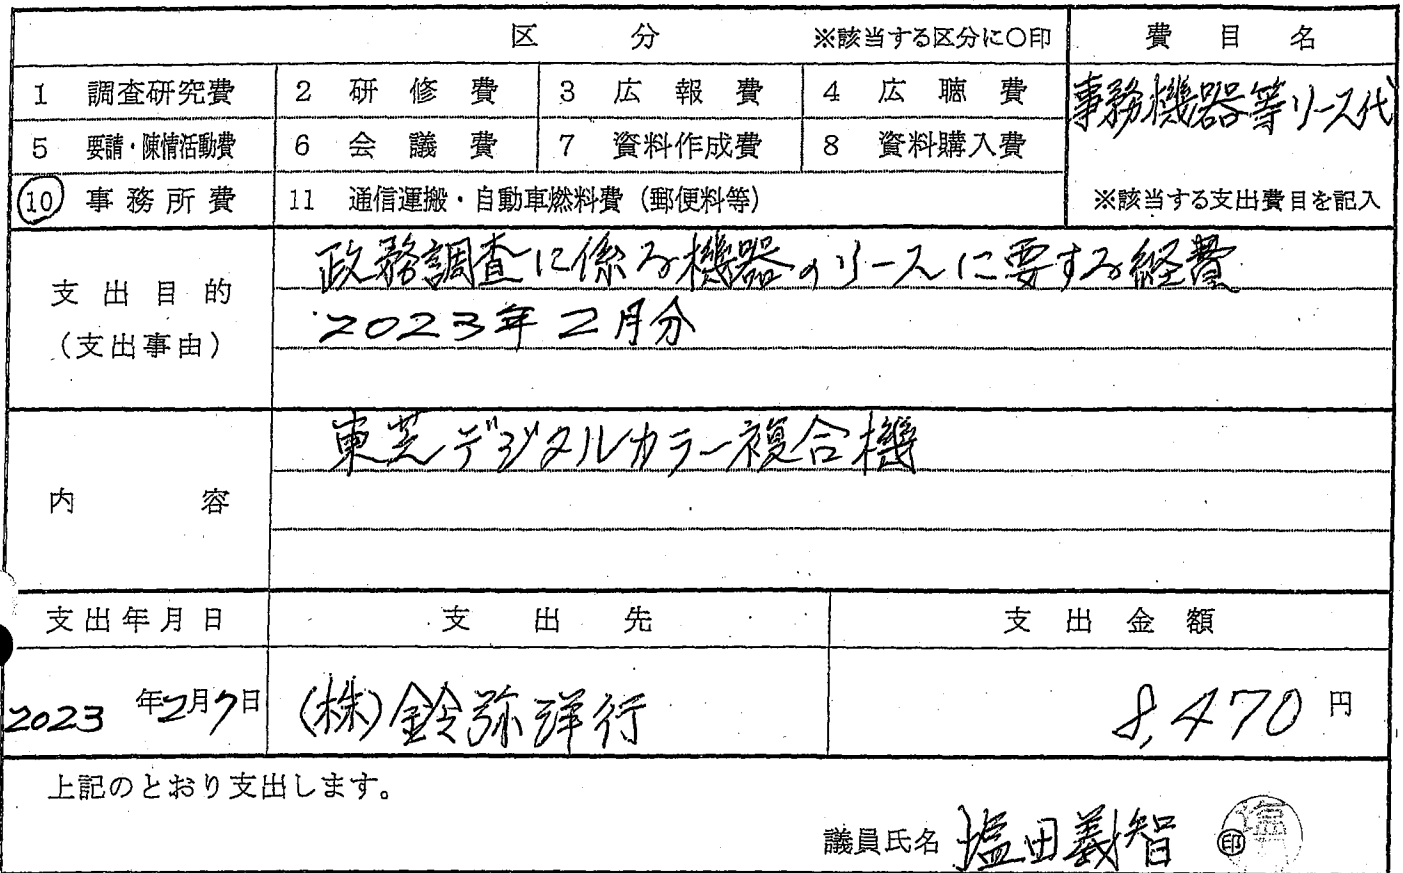 区 分 ※該当する区分に〇印 費目名
1 調査研究費 2 研修費 3 広報費 4 広聴費 事務機器等リース代
5 要請・陳情活動費 6 会議費 7 資料作成費 8 資料購入費
10 事務所費 11 通信運搬・自動車燃料費（郵便料等） ※該当する支出費目を記入
支出目的
（支出事由）
政務調査に係る機器のリースに要する経費
2023年2月分
内容
東芝デジタルカラー複合機
支出年月日 支出先 支出金額
2023年2月7日 (株)鈴弥洋行 8,470円
上記のとおり支出します。
議員氏名 塩田義智 印